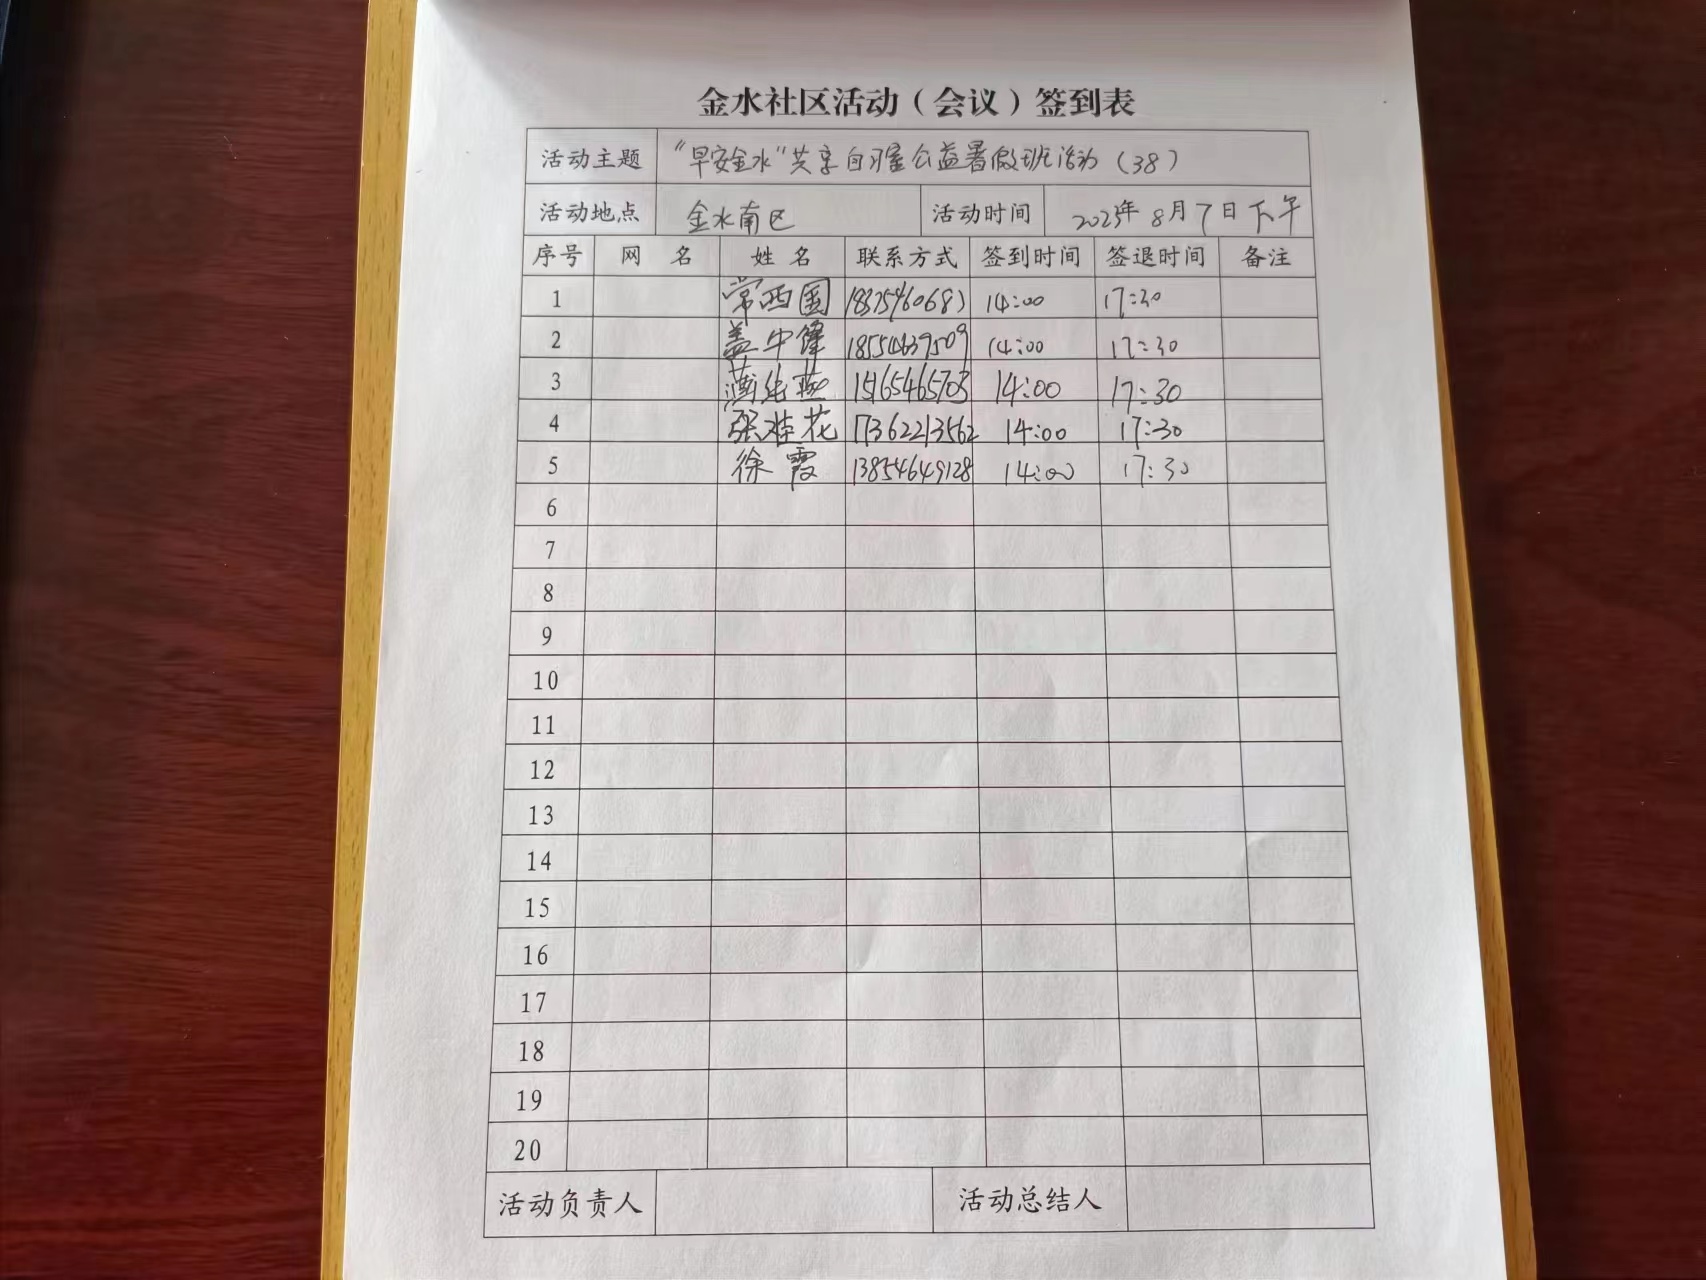 金水社区活动（会议）签到表
活动主题 “早安金水”共享自习室公益暑假班活动（38）
活动地点 金水南区 活动时间 2023年8月7日下午
序号 网 名 姓 名 联系方式 签到时间 签退时间 备注
1 常西国 14:00 17:30
2 盖中锋 18554639509 14:00 17:30
3 燕 15165465703 14:00 17:30
4 张桂花 17362213562 14:00 17:30
5 徐霞 13854649128 14:00 17:30
6
7
8
9
10
11
12
13
14
15
16
17
18
19
20
活动负责人 活动总结人